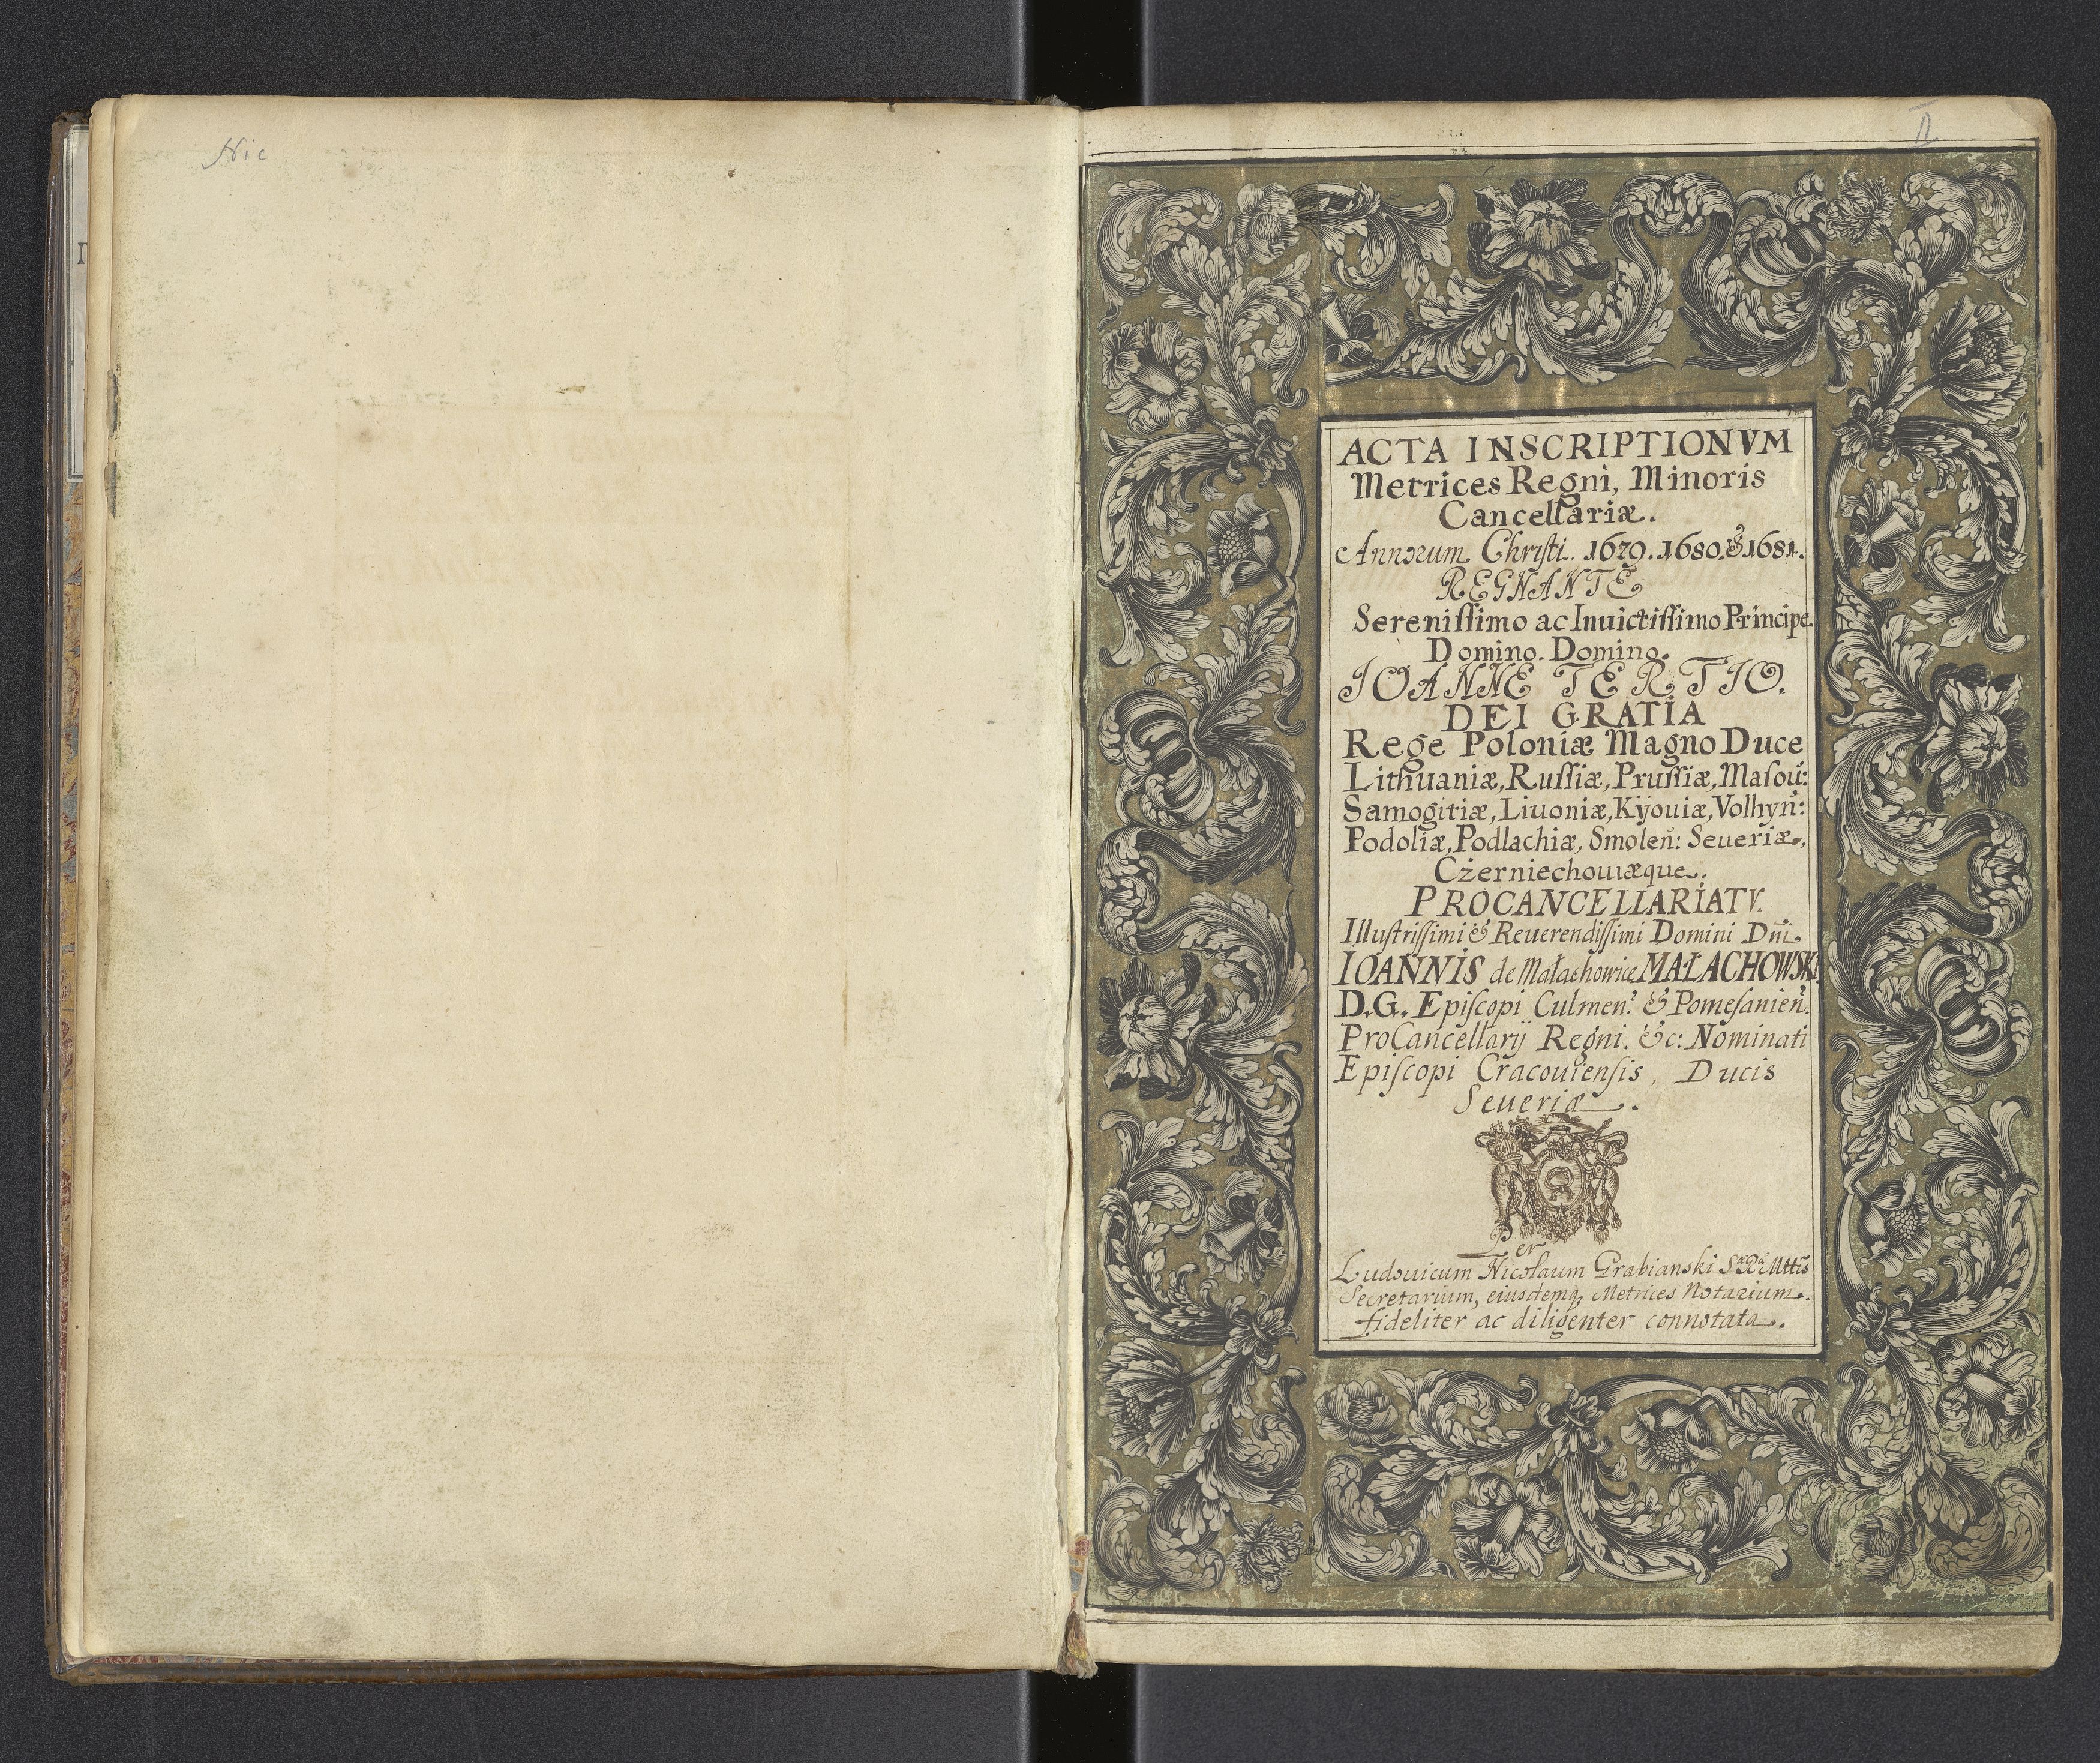 Nic
II
ACTA INSCRIPTIONVM
Metrices Regni, Minoris
Cancellariæ.
Annorum Christi. 1679. 1680. & 1681.
REGNANTE
Serenissimo ac Inuictissimo Principe.
Domino. Domino.
IOANNE TERTIO.
DEI GRATIA
Rege Poloniæ Magno Duce
Lithuaniæ, Russiæ, Prussiæ, Masou:
Samogitiæ, Liuoniæ, Kÿouiæ, Volhyn:
Podoliæ, Podlachiæ, Smolen: Seueriæ,
Czerniechouiæque.
PROCANCELLARIATV.
Illustrissimi & Reuerendissimi Domini Dni.
IOANNIS de Małachowice MAŁACHOWSKI
D.G. Episcopi Culmen: & Pomesanien.
ProCancellarij Regni. &c: Nominati
Episcopi Cracouiensis, Ducis
Seueriæ.
Per
Ludouicum Nicolaum Grabianski Sæ Ræ Mttis
Secretarium, eiusdemq, Metrices Notarium.
fideliter ac diligenter connotata.